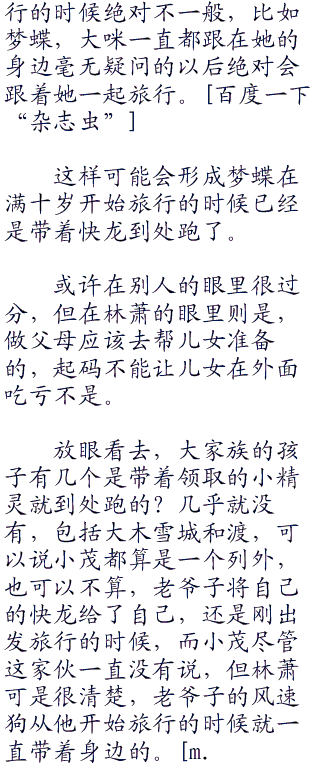 行的时候绝对不一般，比如
梦蝶，大咪一直都跟在她的
身边毫无疑问的以后绝对会
跟着她一起旅行。[百度一下
“杂志虫”]
这样可能会形成梦蝶在
满十岁开始旅行的时候已经
是带着快龙到处跑了。
或许在别人的眼里很过
分，但在林萧的眼里则是，
做父母应该去帮儿女准备
的，起码不能让儿女在外面
吃亏不是。
放眼看去，大家族的孩
子有几个是带着领取的小精
灵就到处跑的？几乎就没
有，包括大木雪城和渡，可
以说小茂都算是一个列外，
也可以不算，老爷子将自己
的快龙给了自己，还是刚出
发旅行的时候，而小茂尽管
这家伙一直没有说，但林萧
可是很清楚，老爷子的风速
狗从他开始旅行的时候就一
直带着身边的。[m.